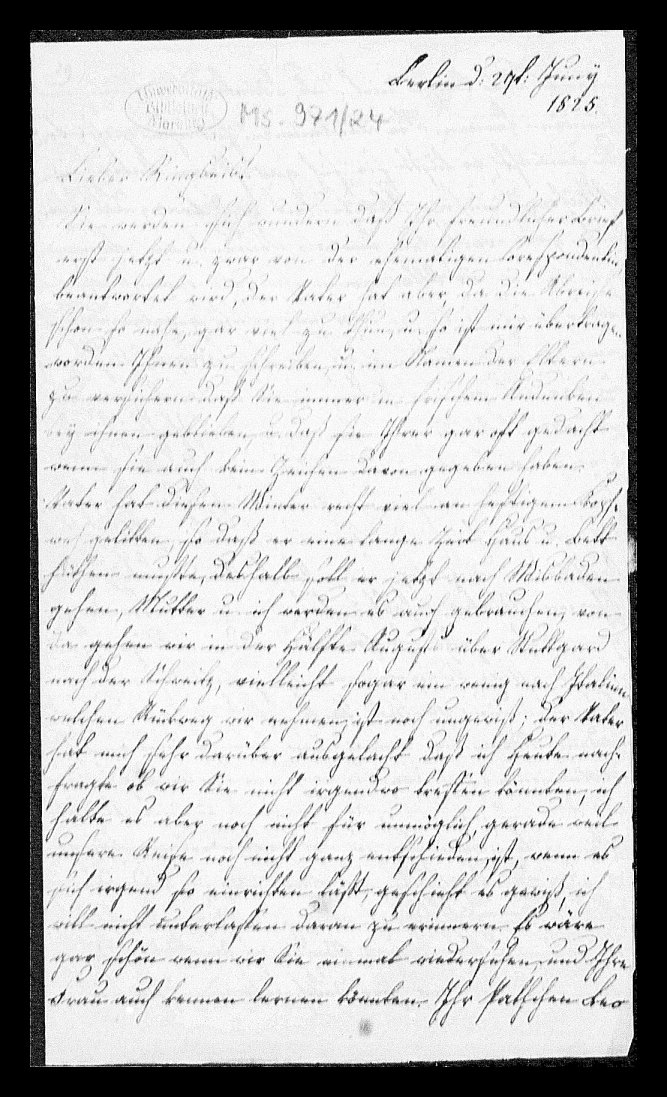 Berlin d: 29t: Juny
1825.
Universitäts
Bibliothek
Marburg
Ms. 971/24
Lieber Ringseis!
Sie werden sich wundern daß Ihr freundlicher Brief
erst jetzt u. zwar von der ehemaligen Correspondentin,
beantwortet wird, der Vater hat aber, da die Abreise
schon so nahe, gar viel zu thun, u. so ist mir übertragen
worden Ihnen zu schreiben, u. im Namen der Eltern
zu versichern daß Sie immer in frischem Andenken
bey ihnen geblieben, u. daß sie Ihrer gar oft gedacht
wenn sie auch kein Zeichen davon gegeben haben.
Vater hat diesen Winter recht viel an heftigem Kopf-
weh gelitten, so daß er eine lange Zeit Haus u. Bett
hüthen mußte, deshalb soll er jetzt nach Wisbaden
gehen, Mutter u. ich werden es auch gebrauchen, von
da gehen wir in der Hälfte Augusts über Stuttgard
nach der Schweitz, vielleicht sogar ein wenig nach Italien,
welchen Rückweg wir nehmen, ist noch ungewiß; der Vater
hat mich sehr darüber ausgelacht daß ich heute nach-
fragte ob wir Sie nicht irgendwo treffen könnten, ich
halte es aber noch nicht für unmöglich, gerade weil
unsere Reise noch nicht ganz entschieden ist, wenn es
sich irgend so einrichten läßt, geschieht es gewiß, ich
will nicht unterlassen daran zu erinnern. Es wäre
gar schön wenn wir Sie einmal wiedersehen und Ihre
Frau auch kennen lernen könnten. Ihr Pathchen Leo